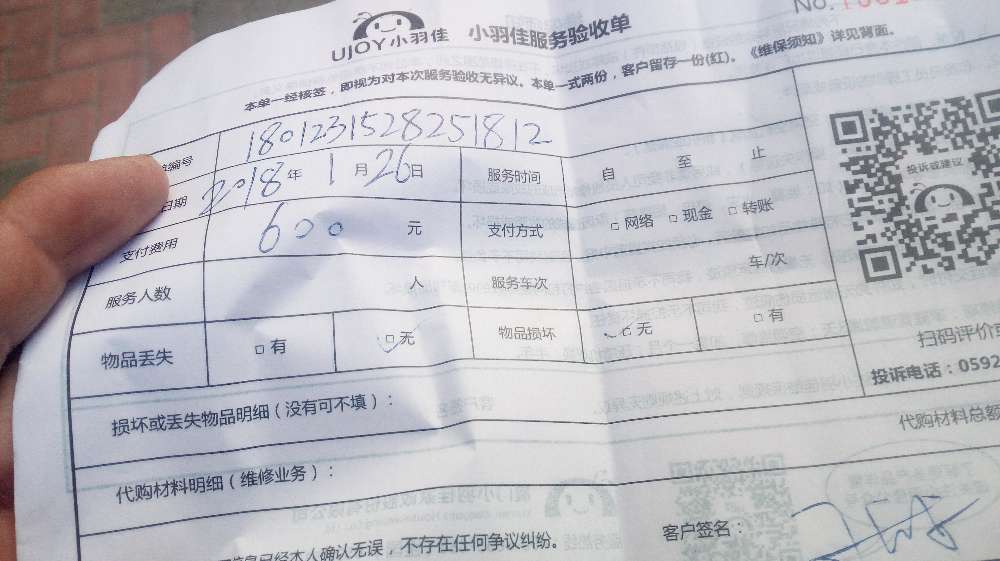 UJOY小羽佳 小羽佳服务验收单
No.
本单一经核签，即视为对本次服务验收无异议。本单一式两份，客户留存一份(红)。《维保须知》详见背面。
编号 1801231528251812
日期 2018年1月26日 服务时间 自 至 止
支付费用 600元 支付方式 □网络 □现金 □转账
服务人数 人 服务车次 车/次
物品丢失 □有 □无 物品损坏 □无 □有
投诉或建议
扫码评价
投诉电话：0592
损坏或丢失物品明细（没有可不填）：
代购材料总额
代购材料明细（维修业务）：
客户签名：
已经本人确认无误，不存在任何争议纠纷。